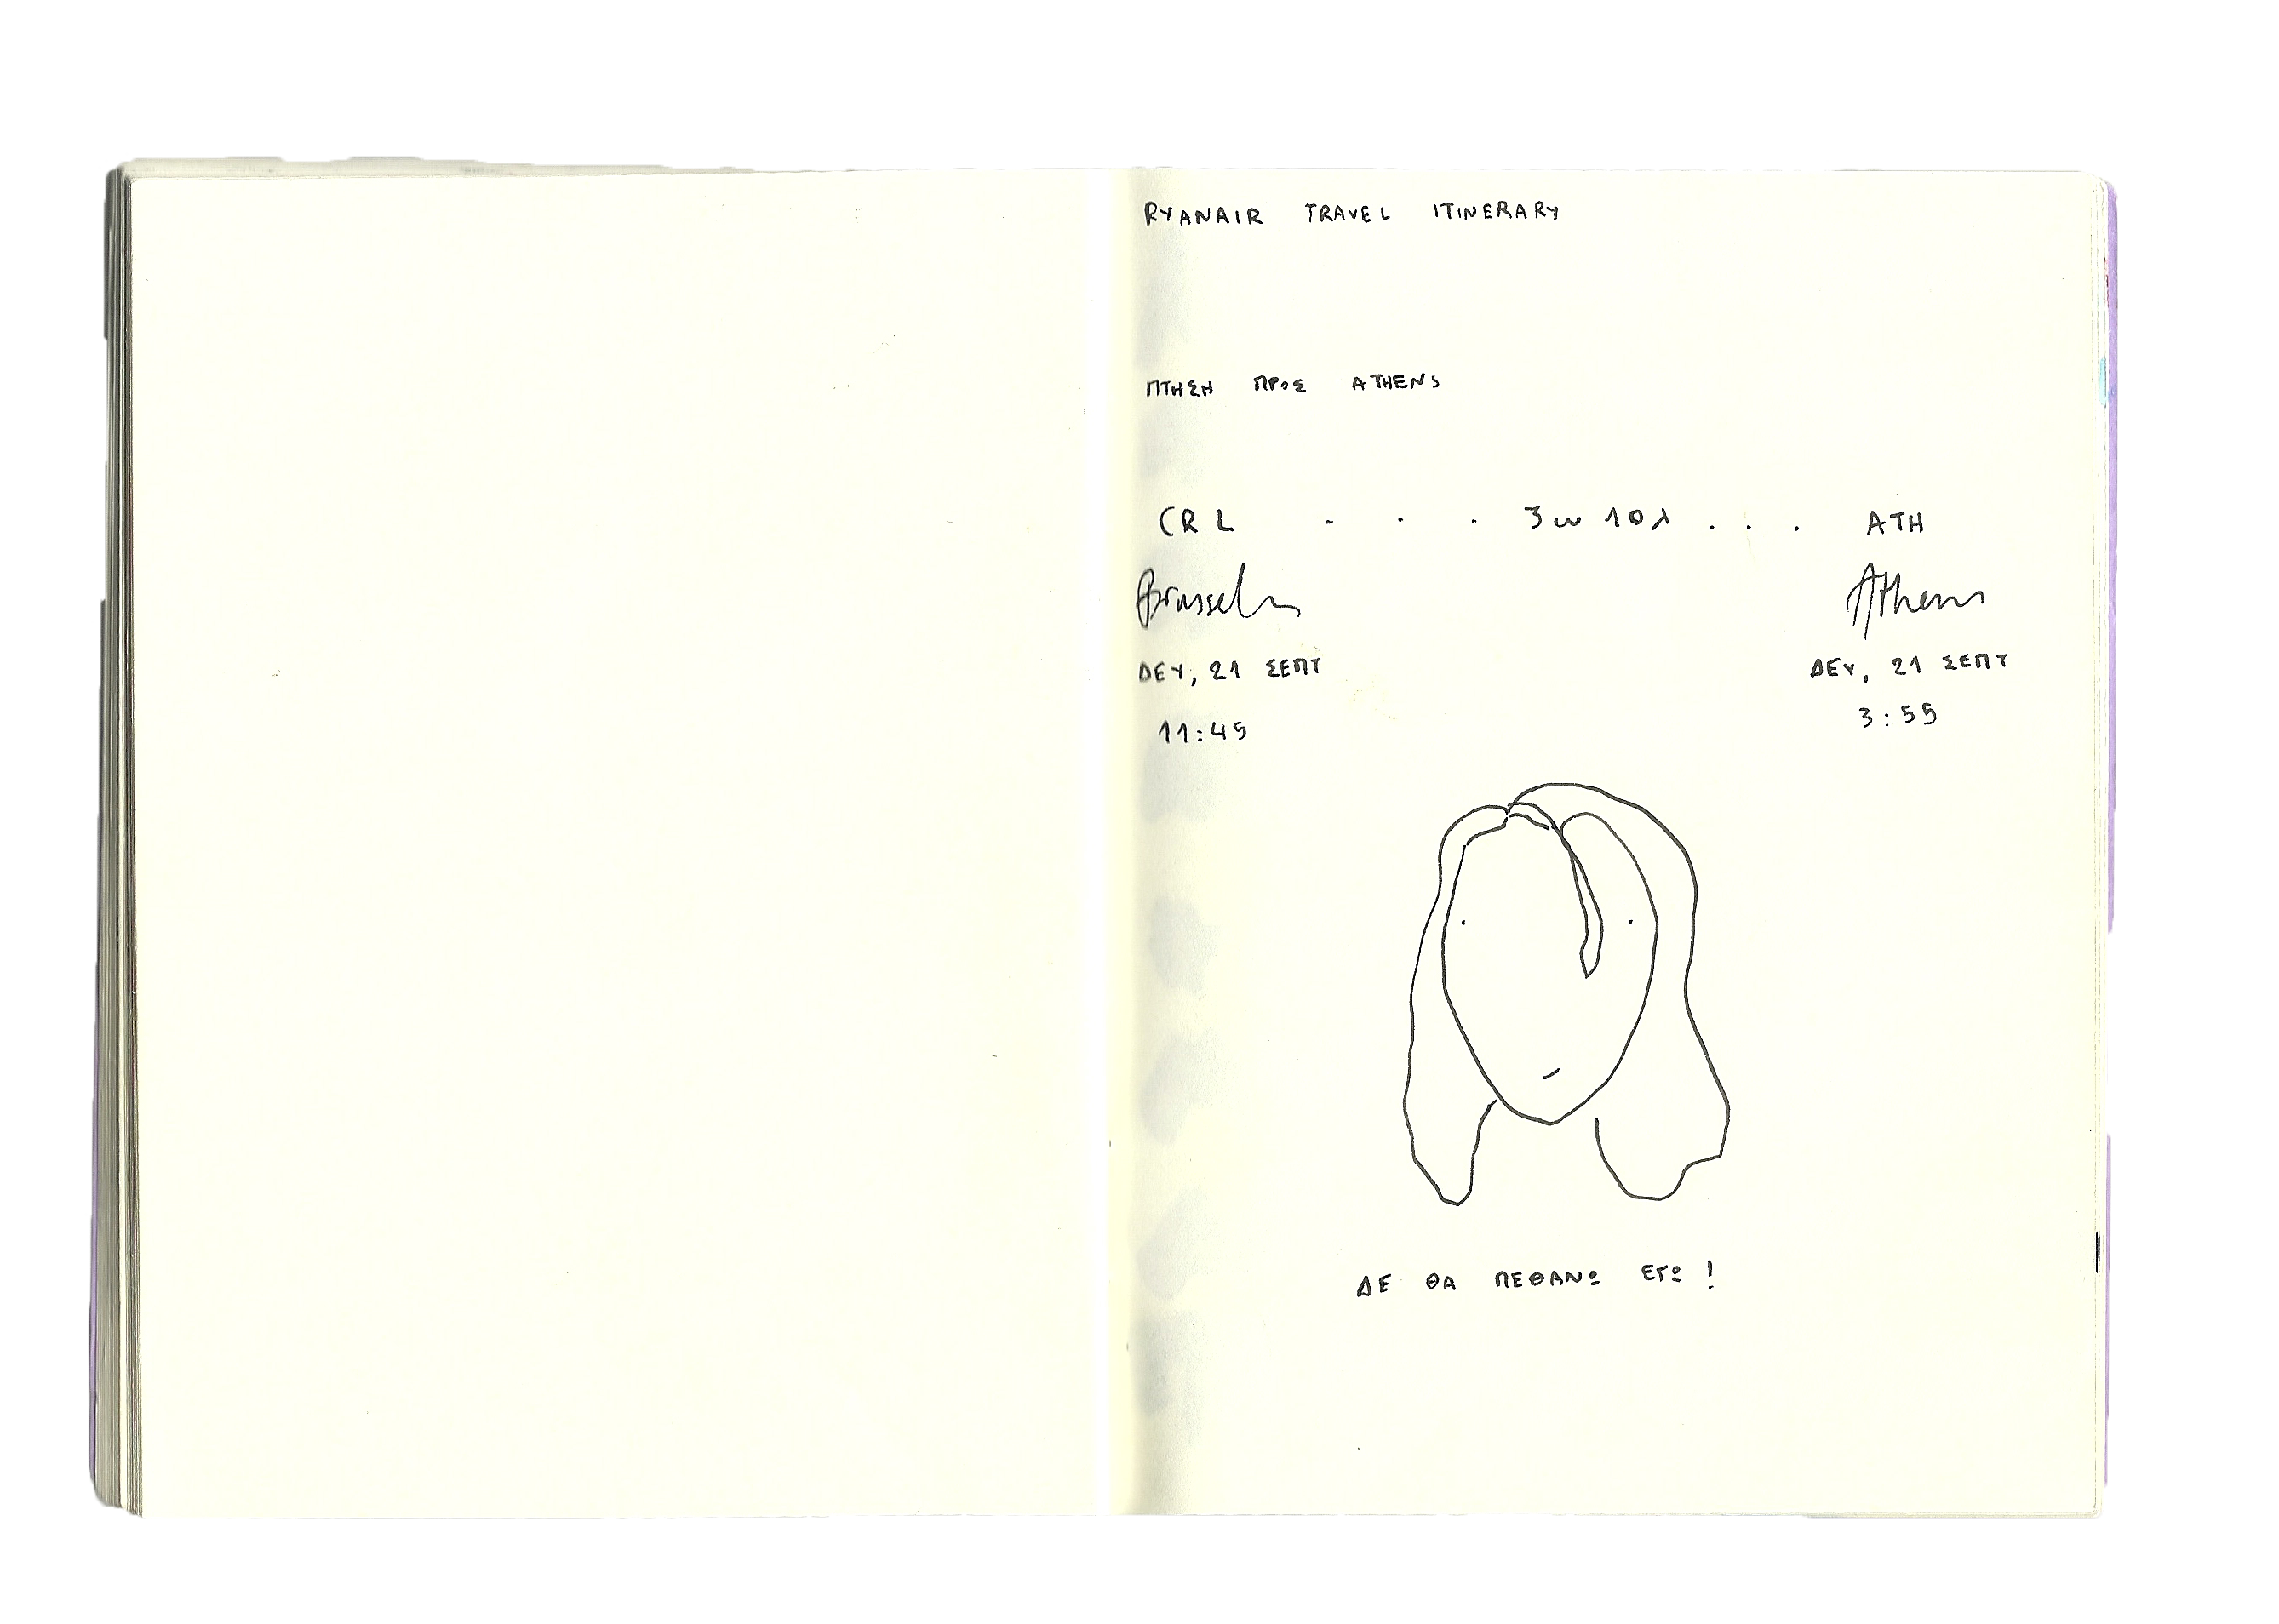 RYANAIR TRAVEL ITINERARY
ΠΤΗΣΗ ΠΡΟΣ ATHENS
CRL . . . 3ω 10λ . . . ATH
Brussels Athens
ΔΕΥ, 21 ΣΕΠΤ ΔΕΥ, 21 ΣΕΠΤ
11:45 3:55
ΔΕ ΘΑ ΠΕΘΑΝΩ ΕΓΩ!